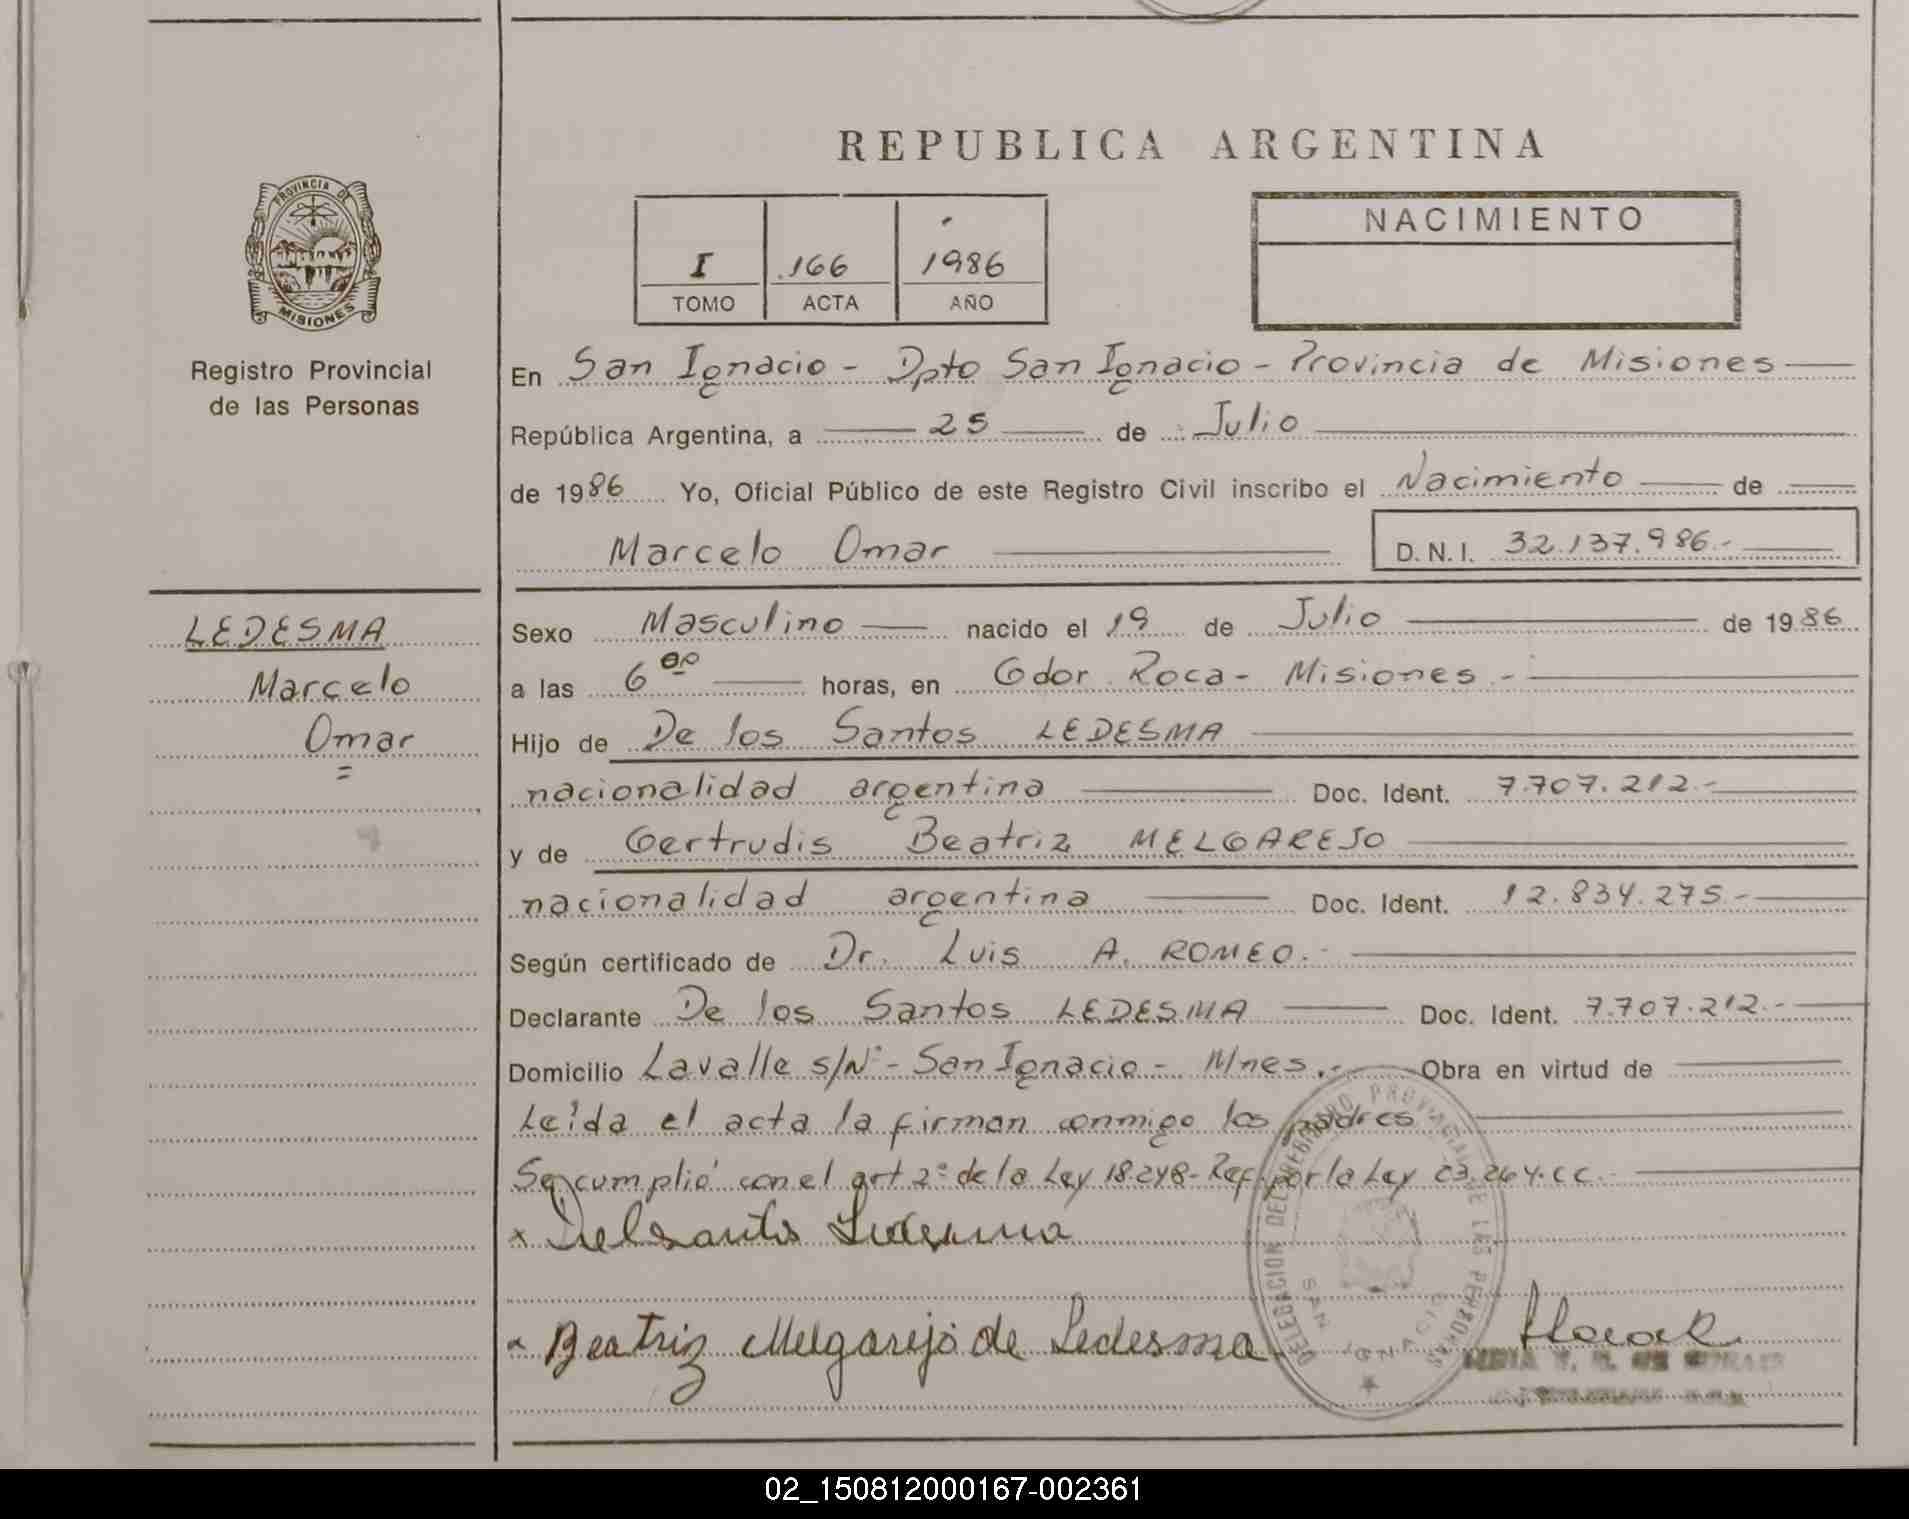 REPUBLICA ARGENTINA
PROVINCIA DE
MISIONES
Registro Provincial
de las Personas
I .166 1986
TOMO ACTA AÑO
NACIMIENTO
En San Ignacio - Dpto San Ignacio - Provincia de Misiones
República Argentina, a 25 de Julio
de 1986 Yo, Oficial Público de este Registro Civil inscribo el Nacimiento de
Marcelo Omar D.N.I. 32.137.986.-
LEDESMA
Marcelo
Omar
=
Sexo Masculino nacido el 19 de Julio de 1986
a las 6 00 horas, en Gdor Roca - Misiones.-
Hijo de De los Santos LEDESMA
nacionalidad argentina Doc. Ident. 7.707.212.-
y de Gertrudis Beatriz MELGAREJO
nacionalidad argentina Doc. Ident. 12.834.275.-
Según certificado de Dr. Luis A. ROMEO.-
Declarante De los Santos LEDESMA Doc. Ident. 7.707.212.-
Domicilio Lavalle s/N° - San Ignacio - Mnes.- Obra en virtud de
Leída el acta la firman conmigo los padres
Se cumplió con el art 2° de la Ley 18.248 - Ref. por la Ley 23.264. CC.
x Delsantos Ledesma
x Beatriz Melgarejo de Ledesma
DELEGACION DEL REGISTRO PROVINCIAL DE LAS PERSONAS
SAN IGNACIO
02_150812000167-002361